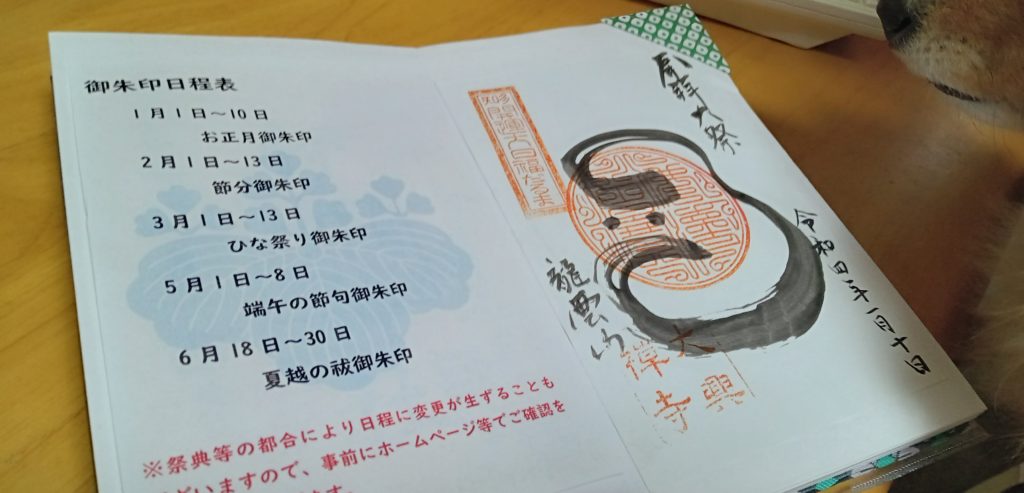 御朱印日程表
1月1日～10日
お正月御朱印
2月1日～13日
節分御朱印
3月1日～13日
ひな祭り御朱印
5月1日～8日
端午の節句御朱印
6月18日～30日
夏越の祓御朱印
※祭典等の都合により日程に変更が生ずることも
ざいますので、事前にホームページ等でご確認を
大祭
令和四年一月十日
知多
開運大口福だるま
龍雲山
大興
禅寺